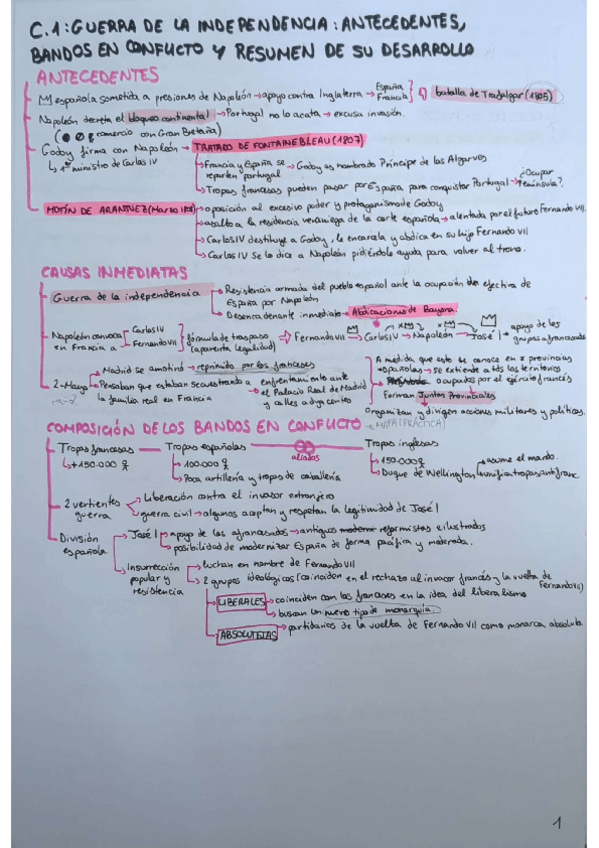 C.1: GUERRA DE LA INDEPENDENCIA: ANTECEDENTES,
BANDOS EN CONFLICTO Y RESUMEN DE SU DESARROLLO
ANTECEDENTES
española sometida a presiones de Napoleón → apoyo contra Inglaterra → España Francia batalla de Trafalgar (1805)
Napoleón decreta el bloqueo continental → Portugal no lo acata → excusa invasión.
( comercio con Gran Bretaña)
Godoy firma con Napoleón → TRATADO DE FONTAINEBLEAU (1807)
↳ 1er ministro de Carlos IV
Francia y España se reparten Portugal → Godoy es nombrado Príncipe de los Algarves
Tropas francesas pueden pasar por España para conquistar Portugal → ¿Ocupar Península?
MOTÍN DE ARANJUEZ (Marzo 1808) → oposición al excesivo poder y protagonismo de Godoy
asalto a la residencia veraniega de la corte española → alentada por el futuro Fernando VII.
Carlos IV destituye a Godoy, le encarcela y abdica en su hijo Fernando VII
Carlos IV se lo dice a Napoleón pidiéndole ayuda para volver al trono.
CAUSAS INMEDIATAS
Guerra de la independencia
Resistencia armada del pueblo español ante la ocupación efectiva de España por Napoleón
Desencadenante inmediato → Abdicaciones de Bayona.
Napoleón convoca en Francia a Carlos IV Fernando VII
fórmula de traspaso (aparenta legalidad) ⇒ Fernando VII → Carlos IV → Napoleón → José I → apoyo de los grupos afrancesados
2 Mayo
Madrid se amotinó → reprimido por los franceses
Pensaban que estaban secuestrando a la familia real en Francia → enfrentamiento ante el Palacio Real de Madrid y calles adyacentes
A medida que esto se conoce en provincias españolas → se extiende a tds los territorios ocupados por el ejército francés
Forman Juntas Provinciales
Organizan y dirigen acciones militares y políticas.
COMPOSICIÓN DE LOS BANDOS EN CONFLICTO → MAPA (PRÁCTICA)
Tropas francesas Tropas españolas aliados Tropas inglesas
↳ +150.000
100.000
Poca artillería y tropas de caballería
150.000
Duque de Wellington → asume el mando. unifica tropas antifranc
2 vertientes guerra
Liberación contra el invasor extranjero
guerra civil → algunos aceptan y respetan la legitimidad de José I
División española
José I → apoyo de los afrancesados → antiguos reformistas e ilustrados
posibilidad de modernizar España de forma pacífica y moderada.
Insurrección popular y resistencia
luchan en nombre de Fernando VII
2 grupos ideológicos (coinciden en el rechazo al invasor francés y la vuelta de Fernando VII)
LIBERALES → coinciden con los franceses en la idea del liberalismo
buscan un nuevo tipo de monarquía.
ABSOLUTISTAS → partidarios de la vuelta de Fernando VII como monarca absoluto.
1